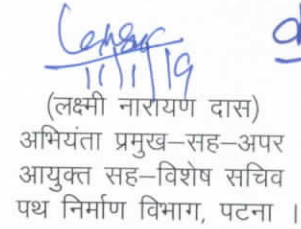 11/1/19
(लक्ष्मी नारायण दास)
अभियंता प्रमुख–सह–अपर
आयुक्त सह–विशेष सचिव
पथ निर्माण विभाग, पटना ।